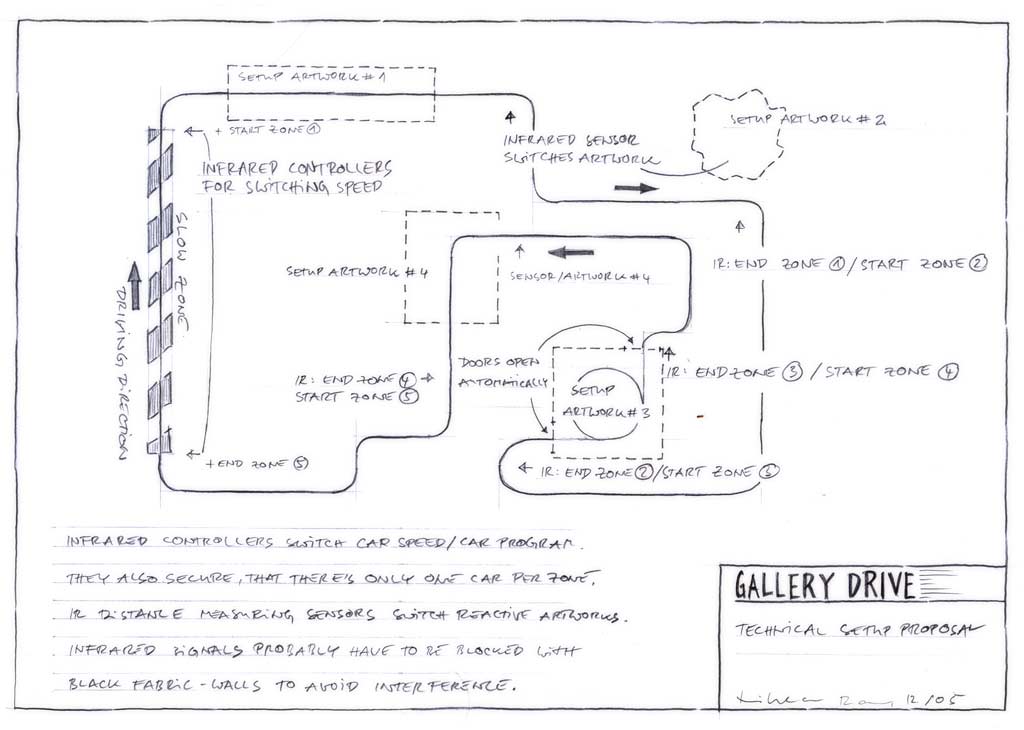 SETUP ARTWORK #1
+ START ZONE ①
INFRARED CONTROLLERS
FOR SWITCHING SPEED
INFRARED SENSOR
SWITCHES ARTWORK
SETUP ARTWORK #2
SLOW ZONE
DRIVING DIRECTION
SETUP ARTWORK #4
SENSOR/ARTWORK #4
IR: END ZONE ① / START ZONE ②
DOORS OPEN
AUTOMATICALLY
SETUP
ARTWORK #3
IR: END ZONE ③ / START ZONE ④
IR: END ZONE ④
START ZONE ⑤
+ END ZONE ⑤
IR: END ZONE ② / START ZONE ③
INFRARED CONTROLLERS SWITCH CAR SPEED/CAR PROGRAM.
THEY ALSO SECURE, THAT THERE'S ONLY ONE CAR PER ZONE.
IR DISTANCE MEASURING SENSORS SWITCH REACTIVE ARTWORKS.
INFRARED SIGNALS PROBABLY HAVE TO BE BLOCKED WITH
BLACK FABRIC-WALLS TO AVOID INTERFERENCE.
GALLERY DRIVE
TECHNICAL SETUP PROPOSAL
12/05